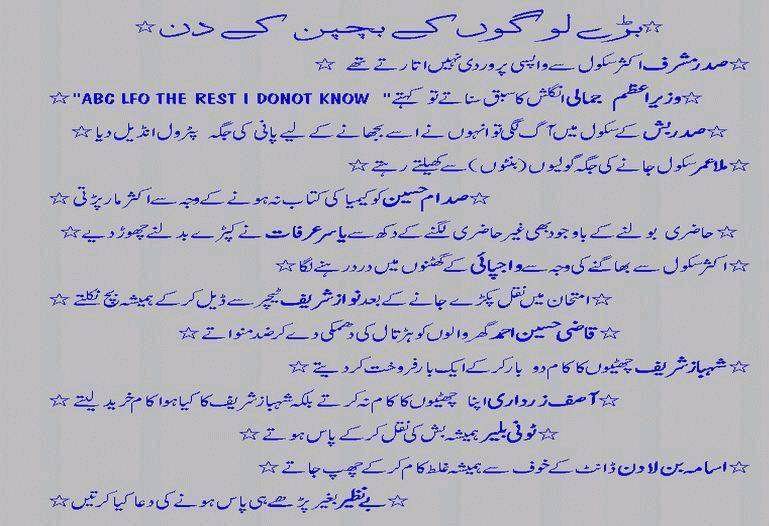 ☆بڑے لوگوں کے بچپن کے دن☆
☆صدر مشرف اکثر سکول سے واپسی پر وردی نہیں اتارتے تھے ☆
☆وزیر اعظم جمالی انگلش کا سبق سناتے تو کہتے "ABC LFO THE REST I DONOT KNOW"☆
☆صدر بش کے سکول میں آگ لگی تو انہوں نے اسے بجھانے کے لیے پانی کی جگہ پٹرول انڈیل دیا☆
☆ملا عمر سکول جانے کی جگہ گولیوں (بنٹوں) سے کھیلتے رہتے☆
☆صدام حسین کو کیمیا کی کتاب نہ ہونے کے وجہ سے اکثر مار پڑتی ☆
☆ حاضری بولنے کے باوجود بھی غیر حاضری لگنے کے دکھ سے یاسر عرفات نے کپڑے بدلنے چھوڑ دیے☆
☆اکثر سکول سے بھاگنے کی وجہ سے واجپائی کے گھٹنوں میں درد رہنے لگا☆
☆امتحان میں نقل پکڑے جانے کے بعد نواز شریف ٹیچر سے ڈیل کر کے ہمیشہ بچ نکلتے ☆
☆ قاضی حسین احمد گھر والوں کو ہڑتال کی دھمکی دے کر ضد منواتے ☆
☆شہباز شریف چھٹیوں کا کام دو بار کر کے ایک بار فروخت کر دیتے ☆
☆آصف زرداری اپنا چھٹیوں کا کام نہ کرتے بلکہ شہباز شریف کا کیا ہوا کام خرید لیتے ☆
☆ٹونی بلیر ہمیشہ بش کی نقل کر کے پاس ہوتے ☆
☆اسامہ بن لادن ڈانٹ کے خوف سے ہمیشہ غلط کام کر کے چھپ جاتے ☆
☆بے نظیر بغیر پڑھے ہی پاس ہونے کی دعا کیا کرتیں☆